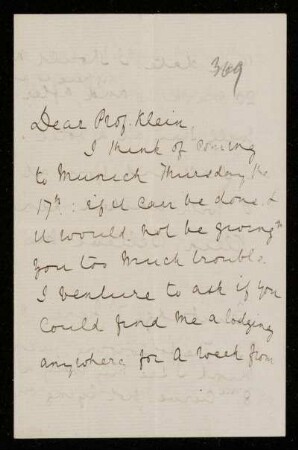 369
Dear Prof. Klein
I think of coming
to Munich Thursday the
17th: if it can be done &
it would not be giving
you too much trouble
I venture to ask if you
could find me a lodging
anywhere for a week from